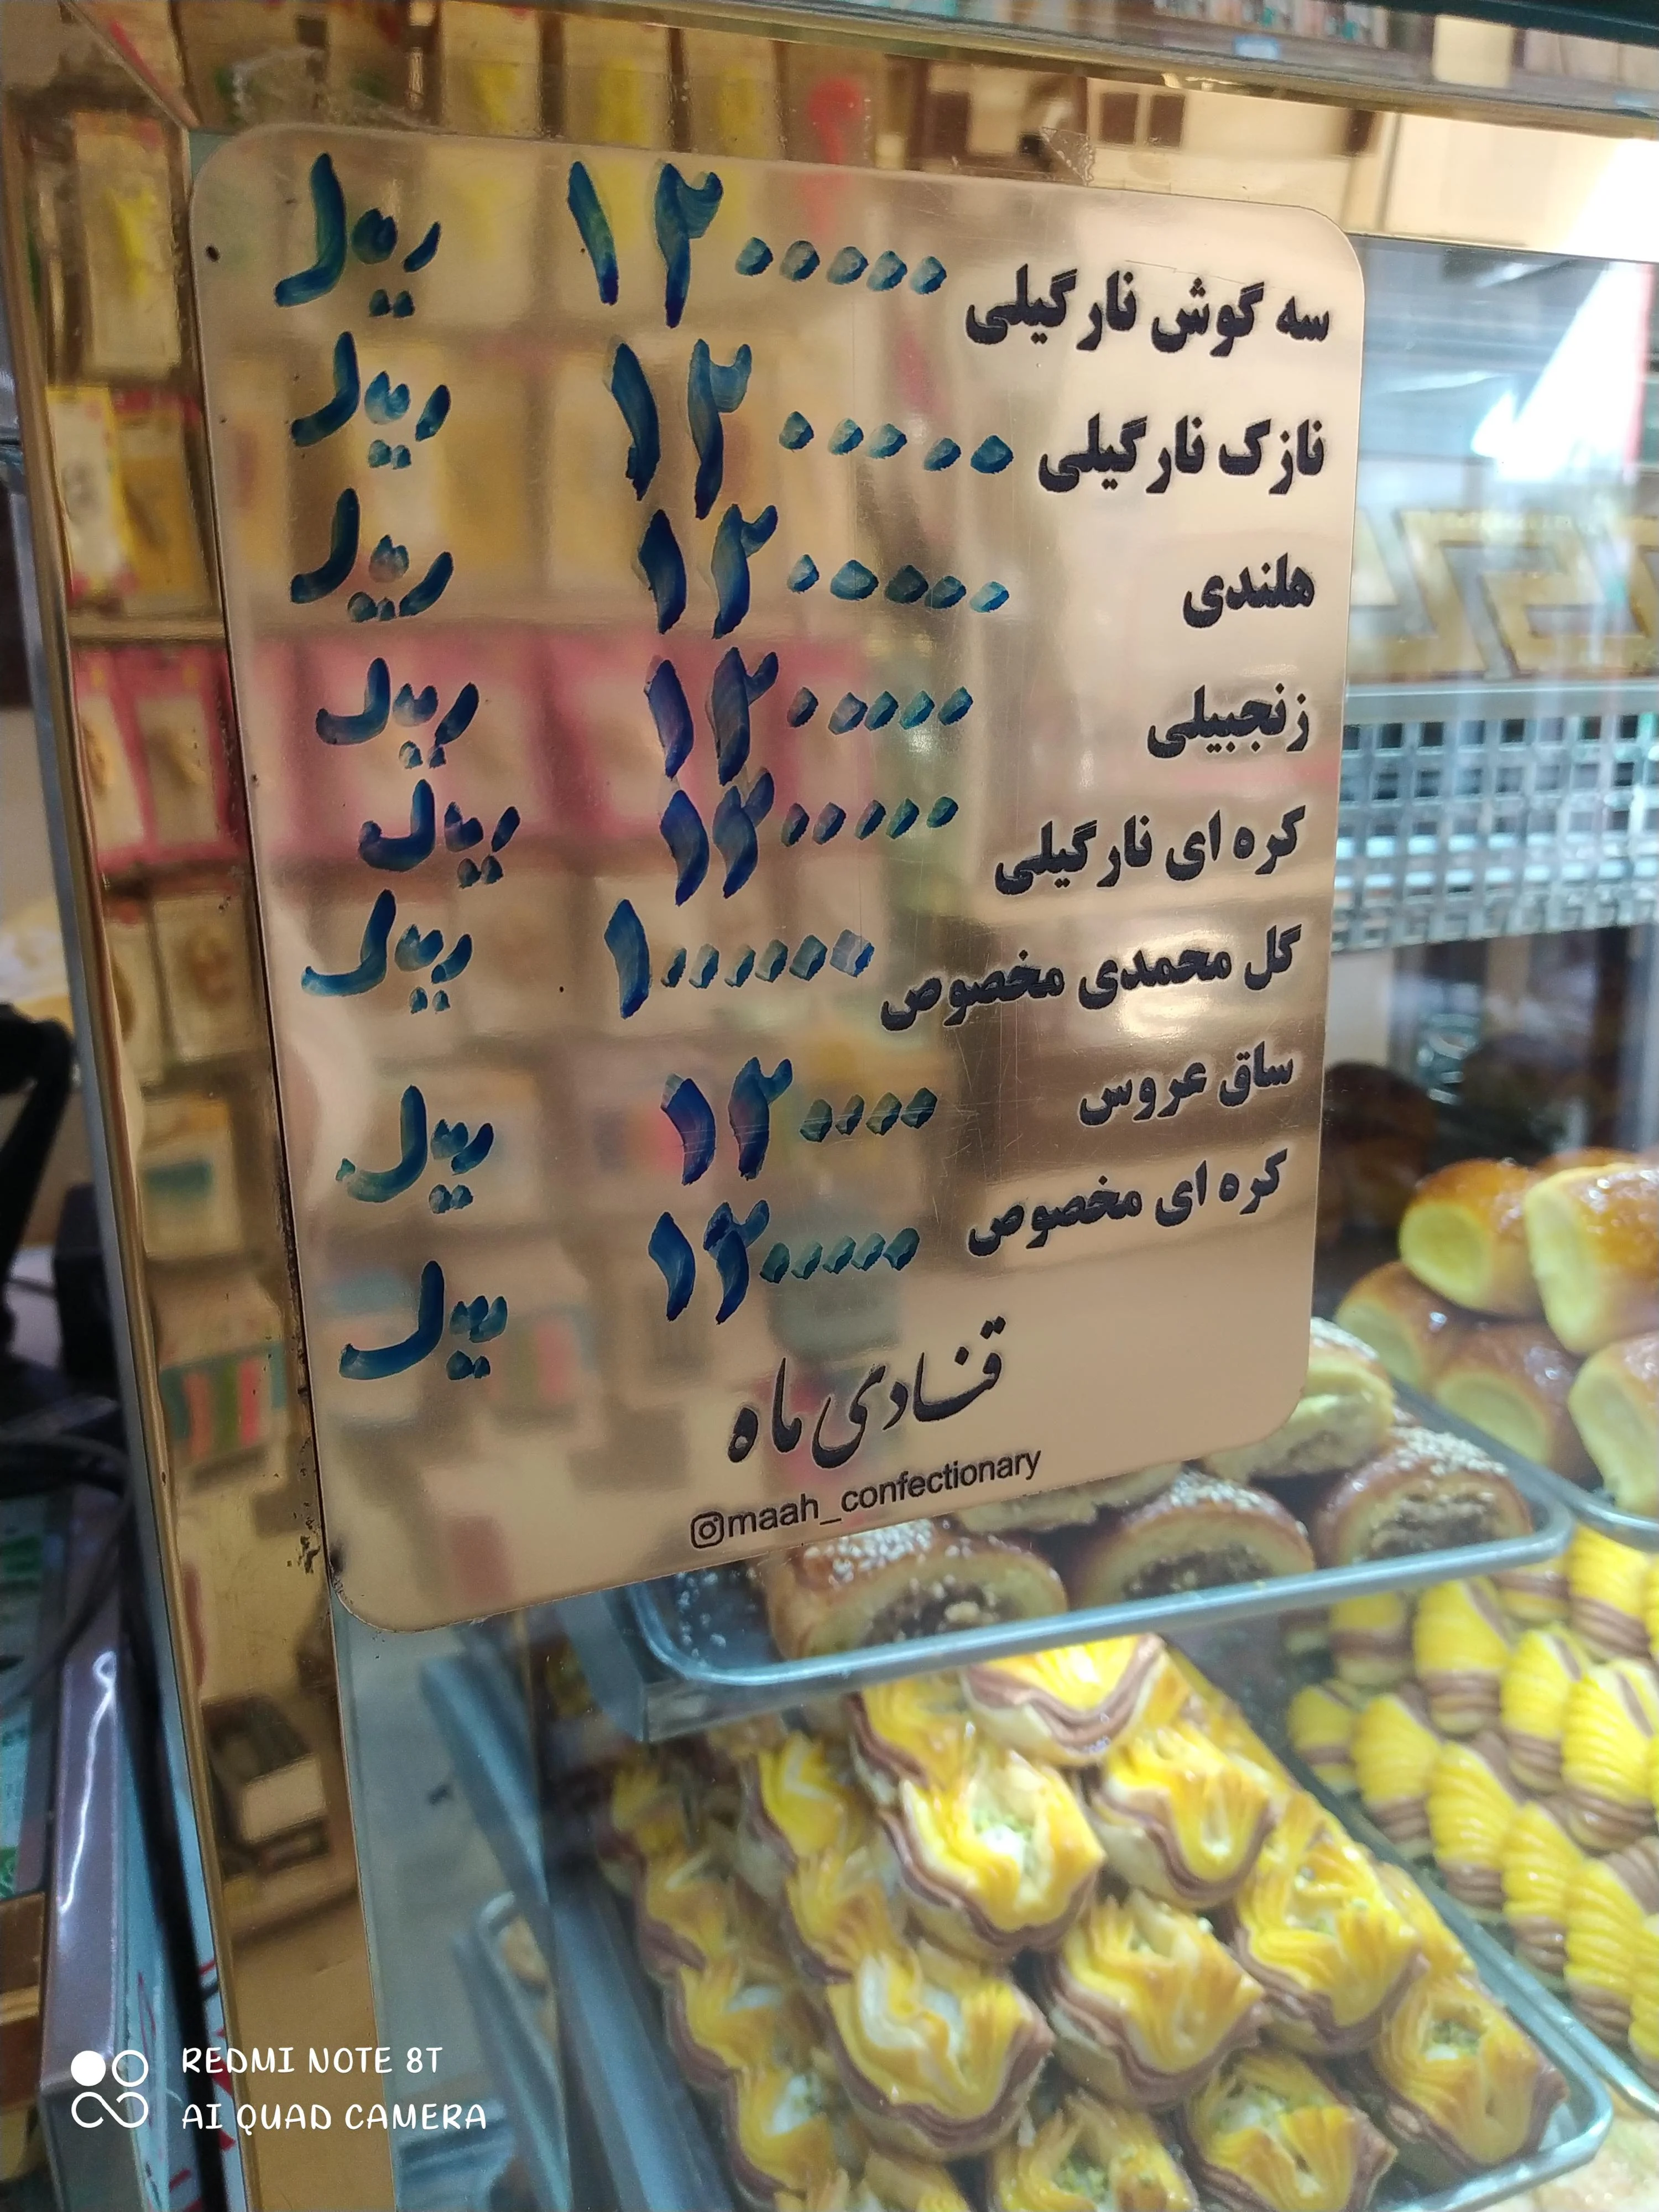 سه گوش نارگیلی ۱۲۰۰۰۰۰ ریال
نازک نارگیلی ۱۲۰۰۰۰۰ ریال
هلندی ۱۲۰۰۰۰۰ ریال
زنجبیلی ۱۲۰۰۰۰۰ ریال
کره ای نارگیلی ۱۲۰۰۰۰۰ ریال
گل محمدی مخصوص ۱۰۰۰۰۰۰ ریال
ساق عروس ۱۲۰۰۰۰ ریال
کره ای مخصوص ۱۲۰۰۰۰۰ ریال
قنادی ماه
maah_confectionary
REDMI NOTE 8T
AI QUAD CAMERA